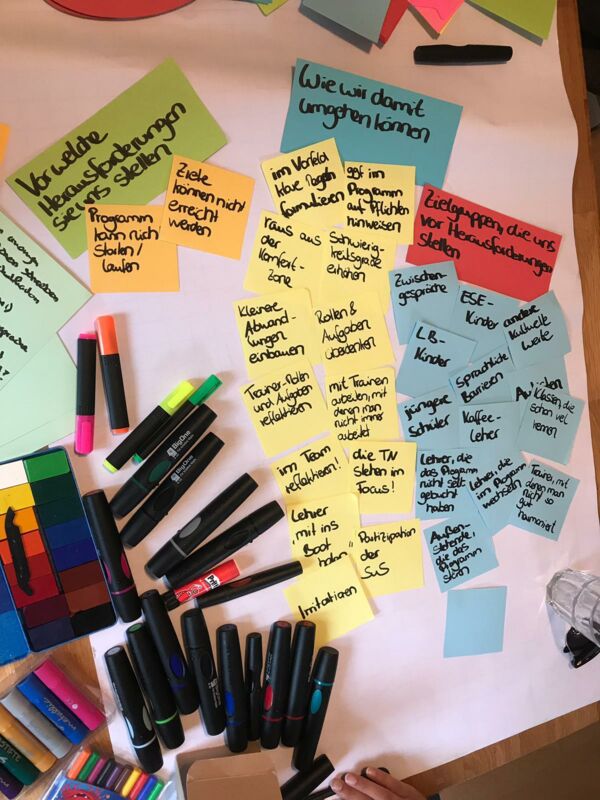 Vor welche
Herausforderungen
sie uns stellen
Programm
kann nicht
starten/
laufen
Ziele
können nicht
erreicht
werden
Wie wir damit
umgehen können
im Vorfeld
klare Regeln
formulieren
ggf im
Programm
auf Pflichten
hinweisen
raus aus
der
Komfort-
zone
Schwierig-
keitsgrade
erhöhen
Kleinere
Abwand-
lungen
einbauen
Rollen &
Aufgaben
überdenken
Trainer-Rollen
und Aufgaben
reflektieren
mit Trainern
arbeiten, mit
denen man
nicht immer
arbeitet
im Team
reflektieren!
die TN
stehen im
Focus!
Lehrer
mit ins
Boot
holen
Partizipation
der
SuS
Irritationen
Zielgruppen, die uns
vor Herausforderungen
stellen
Zwischen-
gespräche
ESE-
Kinder
andere
Kulturelle
Werte
LB-
Kinder
Sprachliche
Barrieren
jüngere
Schüler
Kaffee-
lehrer
Klassen, die
schon viel
kennen
Lehrer, die
das Programm
nicht selbst
gebucht
haben
Lehrer, die
im Programm
wechseln
Trainer, mit
denen man
nicht so
gut
harmoniert
Außen-
stehende,
die das
Programm
stören
BigOne
BigOne
Pritt